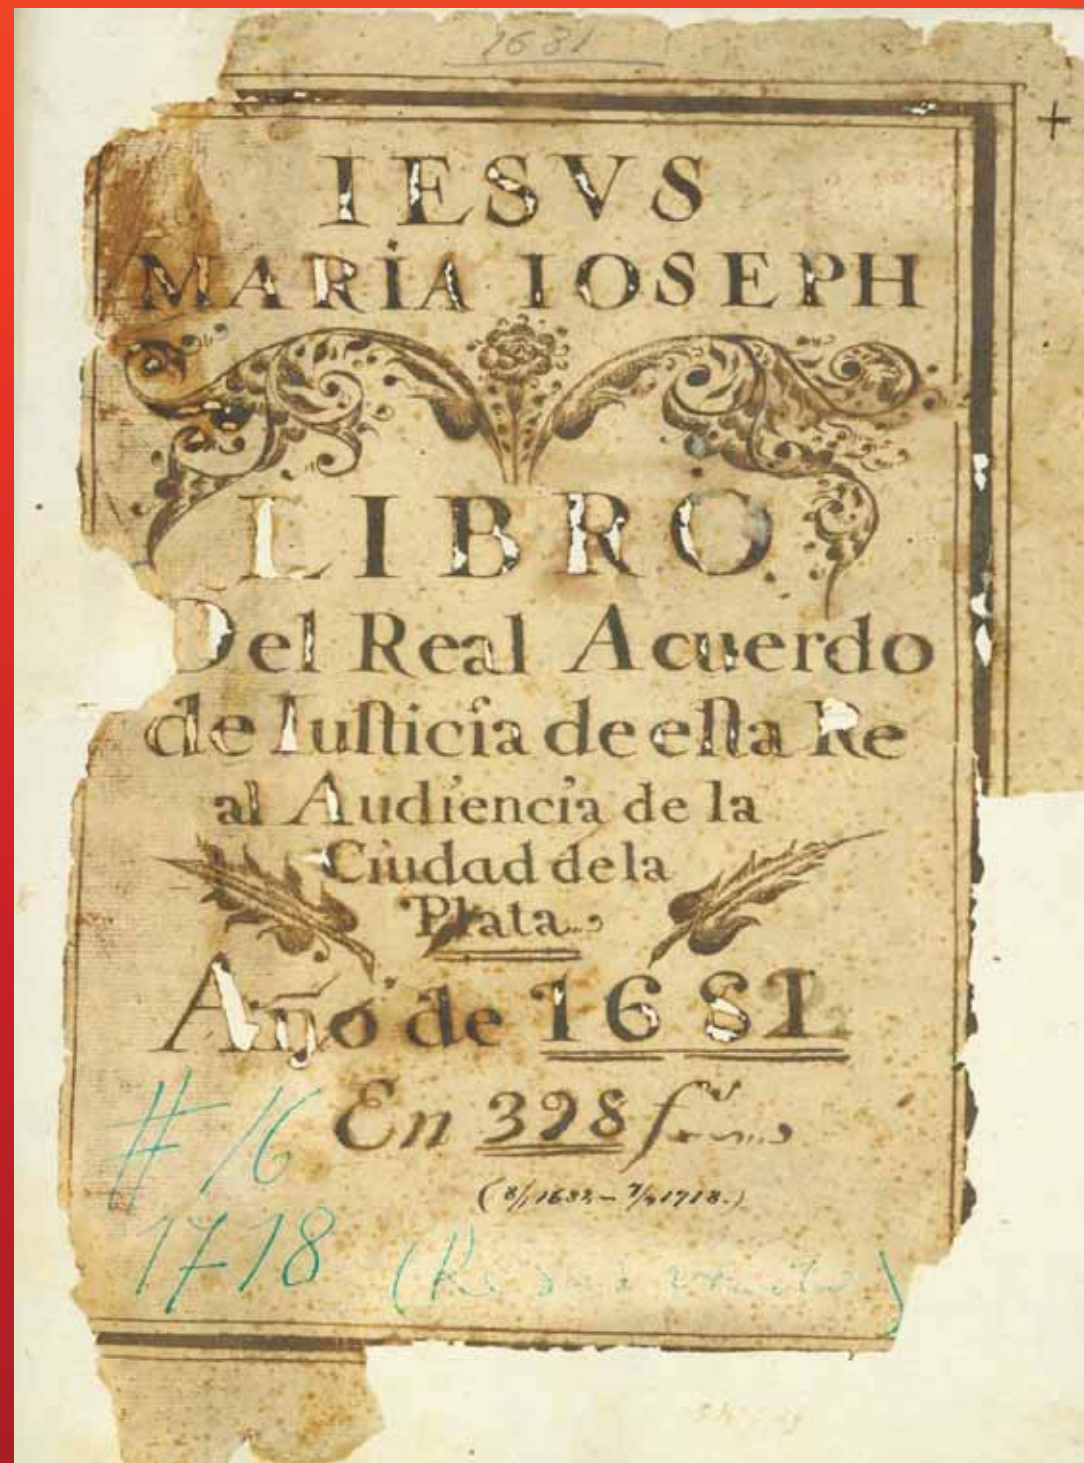 1681
IESVS
MARÍA IOSEPH
LIBRO
Del Real Acuerdo
de Iusticia de esta Re
al Audiencia de la
Ciudad de la
Plata
Año de 1681
En 398
# 16
1718